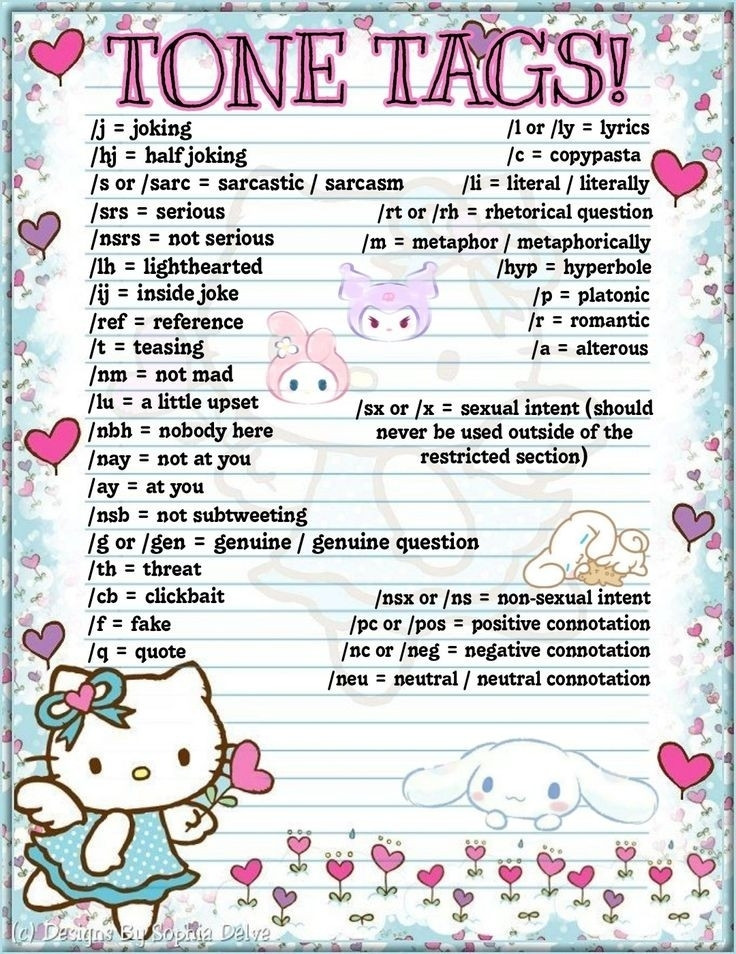 TONE TAGS!
/j = joking
/hj = half joking
/s or /sarc = sarcastic / sarcasm
/srs = serious
/nsrs = not serious
/lh = lighthearted
/ij = inside joke
/ref = reference
/t = teasing
/nm = not mad
/lu = a little upset
/nbh = nobody here
/nay = not at you
/ay = at you
/nsb = not subtweeting
/g or /gen = genuine / genuine question
/th = threat
/cb = clickbait
/f = fake
/q = quote
/l or /ly = lyrics
/c = copypasta
/li = literal / literally
/rt or /rh = rhetorical question
/m = metaphor / metaphorically
/hyp = hyperbole
/p = platonic
/r = romantic
/a = alterous
/sx or /x = sexual intent (should
never be used outside of the
restricted section)
/nsx or /ns = non-sexual intent
/pc or /pos = positive connotation
/nc or /neg = negative connotation
/neu = neutral / neutral connotation
(c) Designs By Sophia Delve